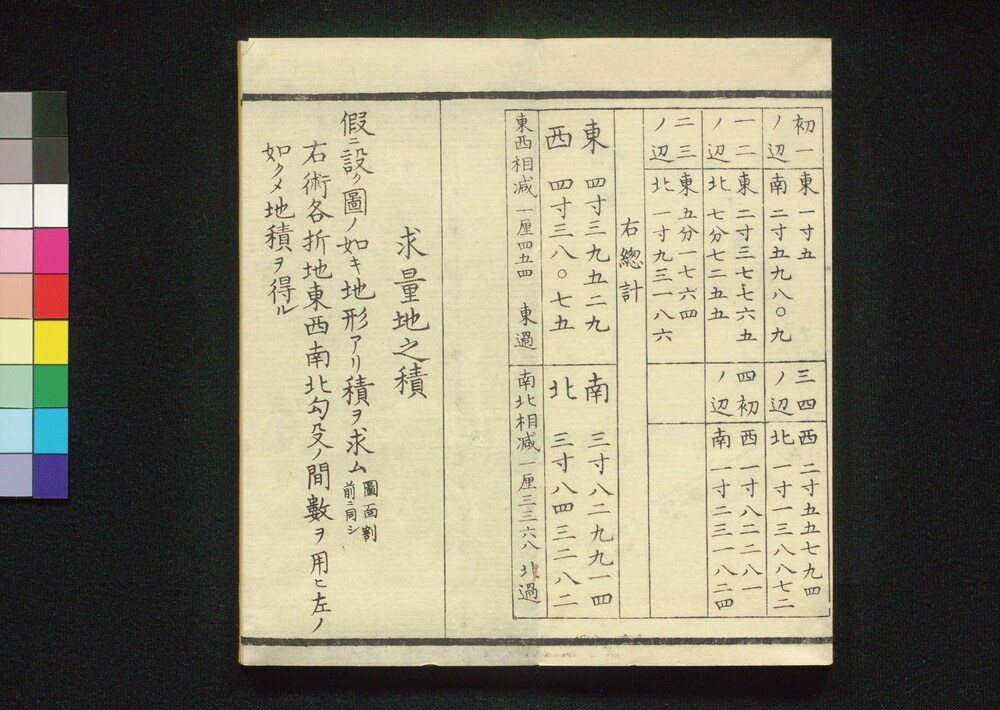 初一
ノ辺
東 一寸五
南 二寸五九八〇九
一二
ノ辺
東 二寸三七七六五
北 七分七二五五
二三
ノ辺
東 五分一七六四
北 一寸九三一八六
三四
ノ辺
西 二寸五五七九四
北 一寸一三八八七二
四初
ノ辺
西 一寸八二二八一
南 一寸二三一八二四
右總計
東 四寸三九五二九
西 四寸三八〇七五
南 三寸八二九九一四
北 三寸八四三二八二
東西相減 一厘四五四 東過
南北相減 一厘三三六八 北過
求量地之積
假ニ設ク圖ノ如キ地形アリ積ヲ求ム 圖面割
前ニ同シ
右術各折地東西南北勾殳ノ間數ヲ用ヒ左ノ
如クメ地積ヲ得ル